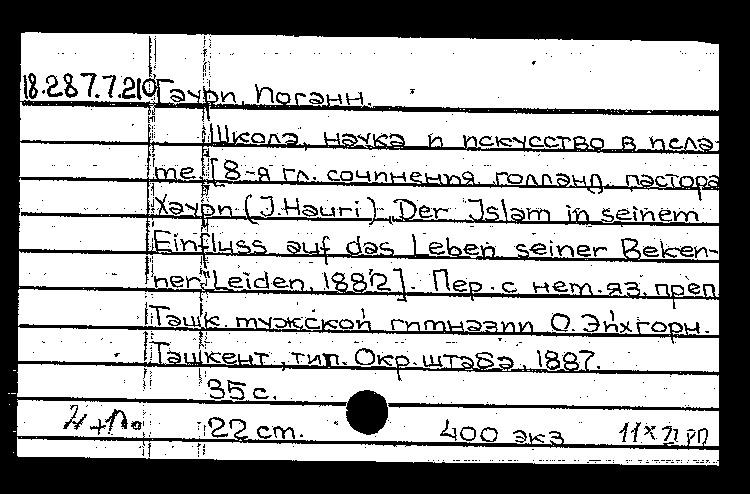 18.287.7.210 Гаури, Иоганн.
Школа, наука и искусство в исла-
ме. [8-я гл. сочинения голланд. пастора
Хаури (J. Hauri) "Der Islam in seinem
Einfluss auf das Leben seiner Beken-
ner" Leiden, 1882]. Пер. с нем. яз. преп.
Ташк. мужской гимназии О. Эйхгорн.
Ташкент, тип. Окр. штаба, 1887.
35 с.
22 см. 400 экз